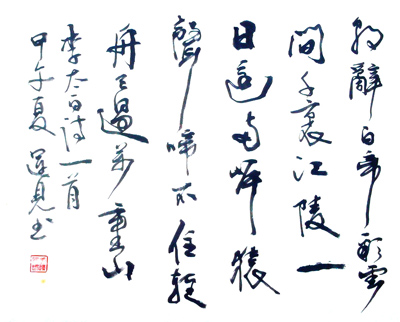 朝辭白帝彩雲
間千裏江陵一
日還兩岸猿
聲啼不住輕
舟已過萬重山
李太白詩一首
甲午夏 見書